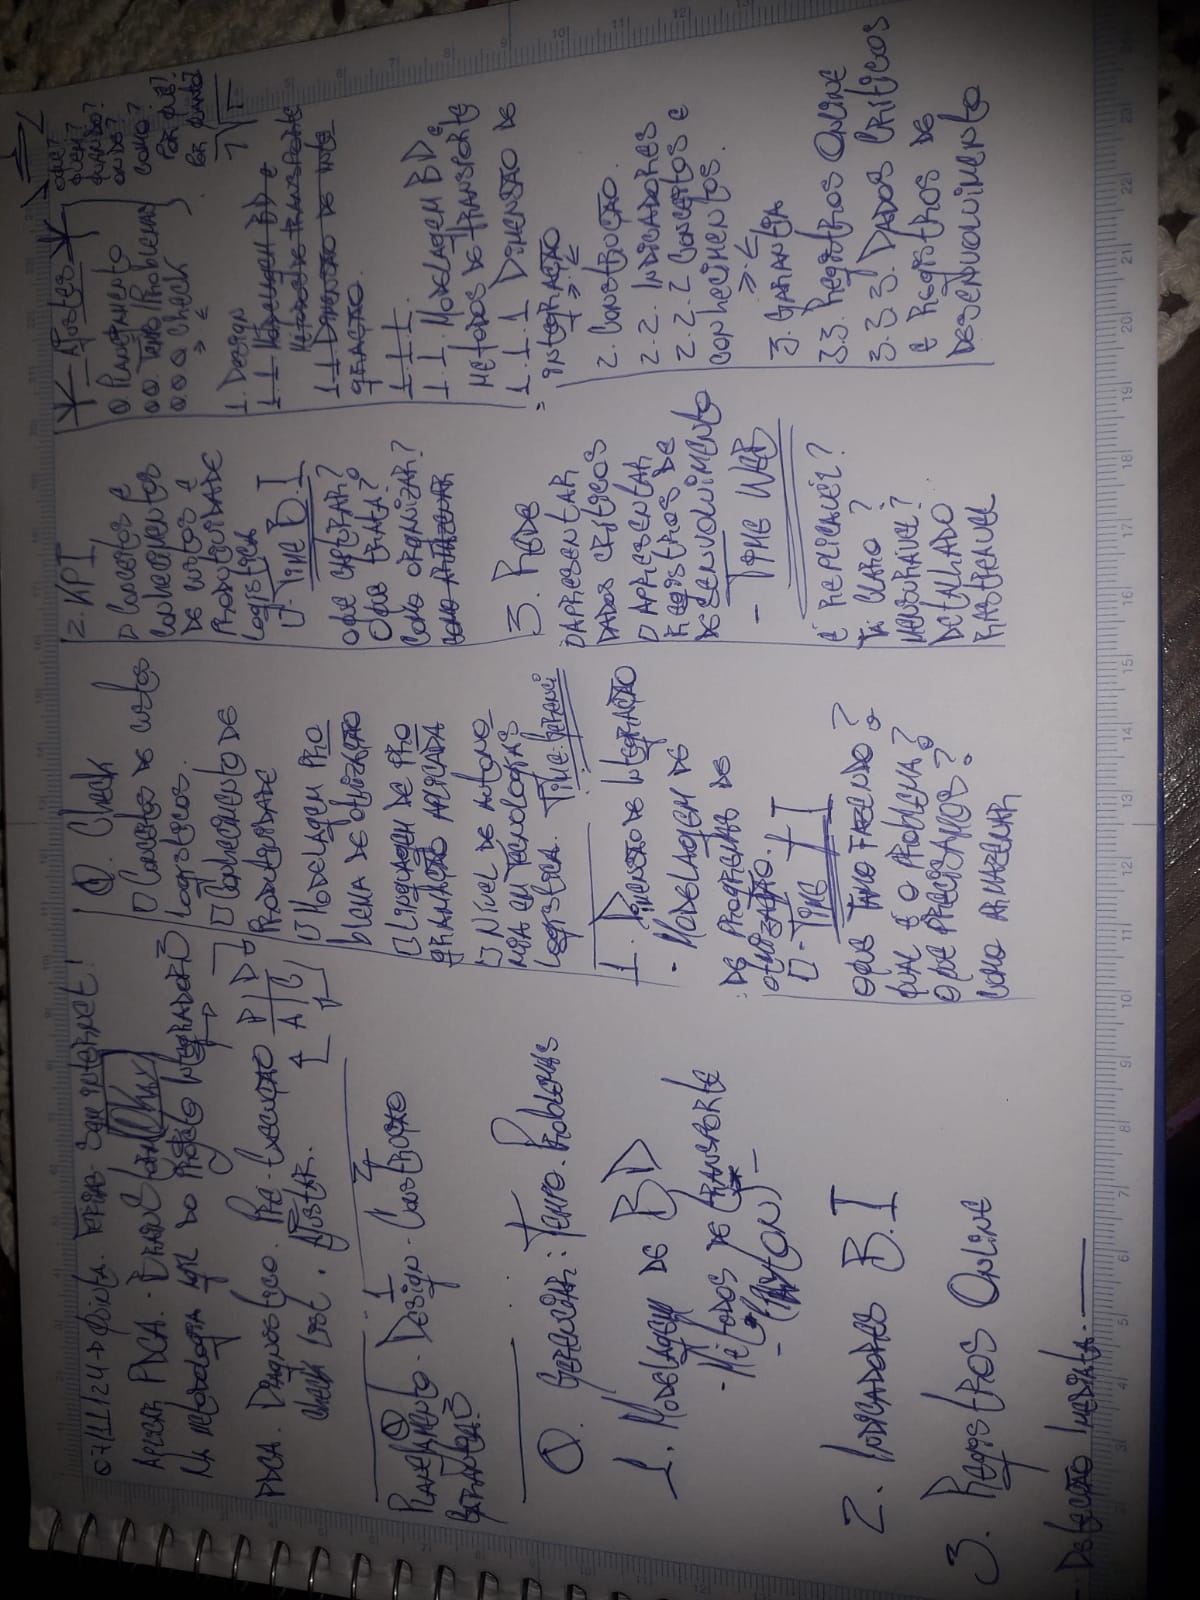 07/11/24 → Quinta. Férias sem internet!
Aplicar PDCA. BrainStorm Okay
Na metodologia Ágil do Projeto Integrador 3
PDCA. Diagnóstico. Pré-Execução
Check List. Ajustar.
P D
A C
0 1 2
Planejamento - Design - Construção
Garantia 3
0. Gerenciar: Tempo. Problemas
1. Modelagem de BD
- Métodos de transporte
- (Payton) -
2. Indicadores B.I
3. Registros Online
- Detecção Imediata.
0. Check
□ Conceitos de custos
logísticos.
□ Conhecimento de
Produtividade
□ Modelagem pro
blema de otmização
□ Linguagem de pro
gramação aplicada
□ Nível de autono
mia em tecnologias
logística. Time: Gerenci
1. Dimensão de Integração
- Modelagem de
de progremas de
otmização.
□ - Time TI
O que tamo fazendo?
Qual é o problema?
O que precisamos?
Como armazenar
2. KPI
□ Conceitos e
conhecimentos
de custos e
produtividade
logística
□ - Time B.I
O que capturar?
O que trata?
Como organizar?
Como armazenar
3. Rede
□ Apresentar
dados críticos
□ Apresentar
registros de
desenvolvimento
- Time WEB
É replicavél?
Tá claro?
Mensurável?
Detalhado
Rastreavel
Ajustes
0. Planejamento
00. Tempo/Problemas
000 Check
> <
O que?
Quem?
Quando?
Onde?
Como?
Por quê?
Por quanto?
1. Design
1.1 Modelagem BD e
Métodos de transporte
1.1 Dimensão de inte
gração.
1.1.1.
1.1. Modelagem BD e
métodos de transporte
1.1.1 Dimensão de
integração
> <
2. Construção.
2.2. Indicadores
2.2.2 Conceitos e
conhecimentos.
> <
3. Garantia
3.3. Registros Online
3.3.3. Dados críticos
e registros de
desenvolvimento